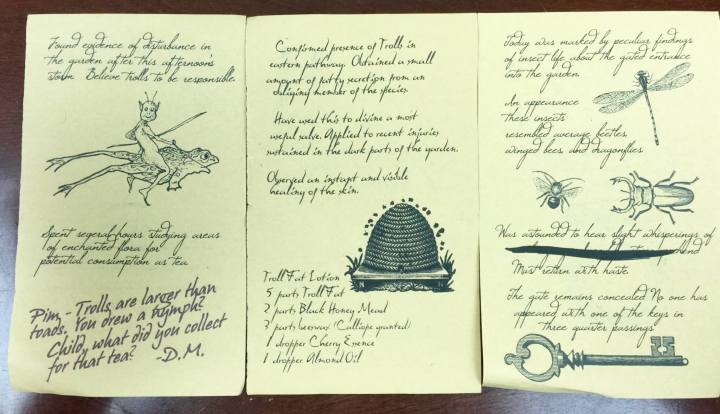 Found evidence of disturbance in
the garden after this afternoon's
storm. Believe trolls to be responsible.
Spent several hours studying areas
of enchanted flora for
potential consumption as tea.
Pim, - Trolls are larger than
toads. You drew a nymph?
Child, what did you collect
for that tea? -D.M.
Confirmed presence of Trolls in
eastern pathway. Obtained a small
amount of fatty secretion from an
obliging member of the species.
Have used this to divine a most
useful salve. Applied to recent injuries
sustained in the dark parts of the garden.
Observed an instant and visible
healing of the skin.
Troll Fat Lotion
5 parts Troll Fat
2 parts Black Honey Mead
3 parts Beeswax (Calliope granted)
1 dropper Cherry Essence
1 dropper Almond Oil
Today was marked by peculiar findings
of insect life about the gated entrance
into the garden.
In appearance
these insects
resembled average beetles,
winged bees, and dragonflies.
Was astounded to hear slight whisperings of
Must return with haste.
The gate remains concealed. No one has
appeared with one of the keys in
three quarter passings.